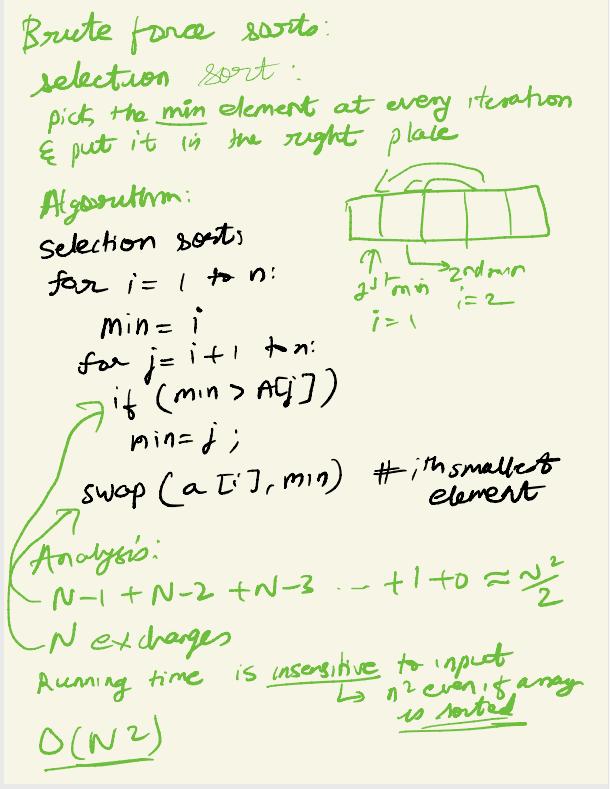 Brute force sorts:
selection sort:
picks the min element at every iteration
& put it in the right place
Algorithm:
selection sort:
for i = 1 to n:
min = i
for j = i+1 to n:
if (min > A[j])
min = j;
swap (a[i], min) # ith smallest
element
1st min
i = 1
2nd min
i = 2
Analysis:
N-1 + N-2 + N-3 ... +1+0 ≈ N²/2
N exchanges
Running time is insensitive to input
↳ n² even if array
is sorted
O(N²)